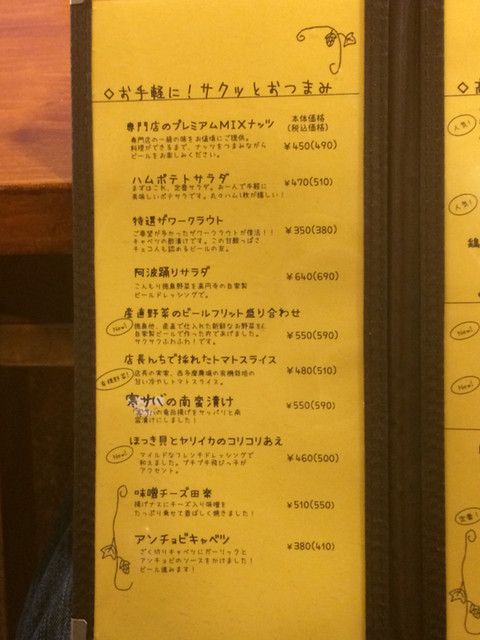 ◇お手軽に！サクッとおつまみ
本体価格
(税込価格)
専門店のプレミアムMIXナッツ
¥450(490)
専門店の一級の味をお値頃にご提供。
料理ができるまで、ナッツをつまみながら
ビールをお楽しみください。
ハムポテトサラダ
¥470(510)
まずはこれ、定番サラダ。お一人で手軽に
美味しいポテサラです。丸々ハム1枚が嬉しい！
特選ザワークラウト
¥350(380)
ご要望が多かったザワークラウトが復活！！
キャベツの酢漬けです。この甘酸っぱさ
チェコ人も認めるビールの友。
阿波踊りサラダ
¥640(690)
こんもり徳島野菜を高円寺の自家製
ビールドレッシングで。
産直野菜のビールフリット盛り合わせ
New!
¥550(590)
徳島他、産直で仕入れた新鮮なお野菜を
自家製ビールで作った衣であげました。
サクサクふわふわ！です。
店長んちで採れたトマトスライス
有機野菜!
¥480(510)
店長の実家、西多摩農場の有機栽培の
甘い冷やしトマトスライス。
寒サバの南蛮漬け
¥550(590)
の竜田揚げをサッパリと南
蛮漬けにしました！
ほっき貝とヤリイカのコリコリあえ
New!
¥460(500)
マイルドなフレンチドレッシングで
和えました。プチプチ飛びっ子が
アクセント。
味噌チーズ田楽
¥510(550)
揚げナスにチーズ入り味噌を
たっぷり乗せて香ばしく焼きました！
アンチョビキャベツ
¥380(410)
ざく切りキャベツにガーリックと
アンチョビのソースをかけました！
ビール進みます！
人気!
人気!
New!
New!
定番!